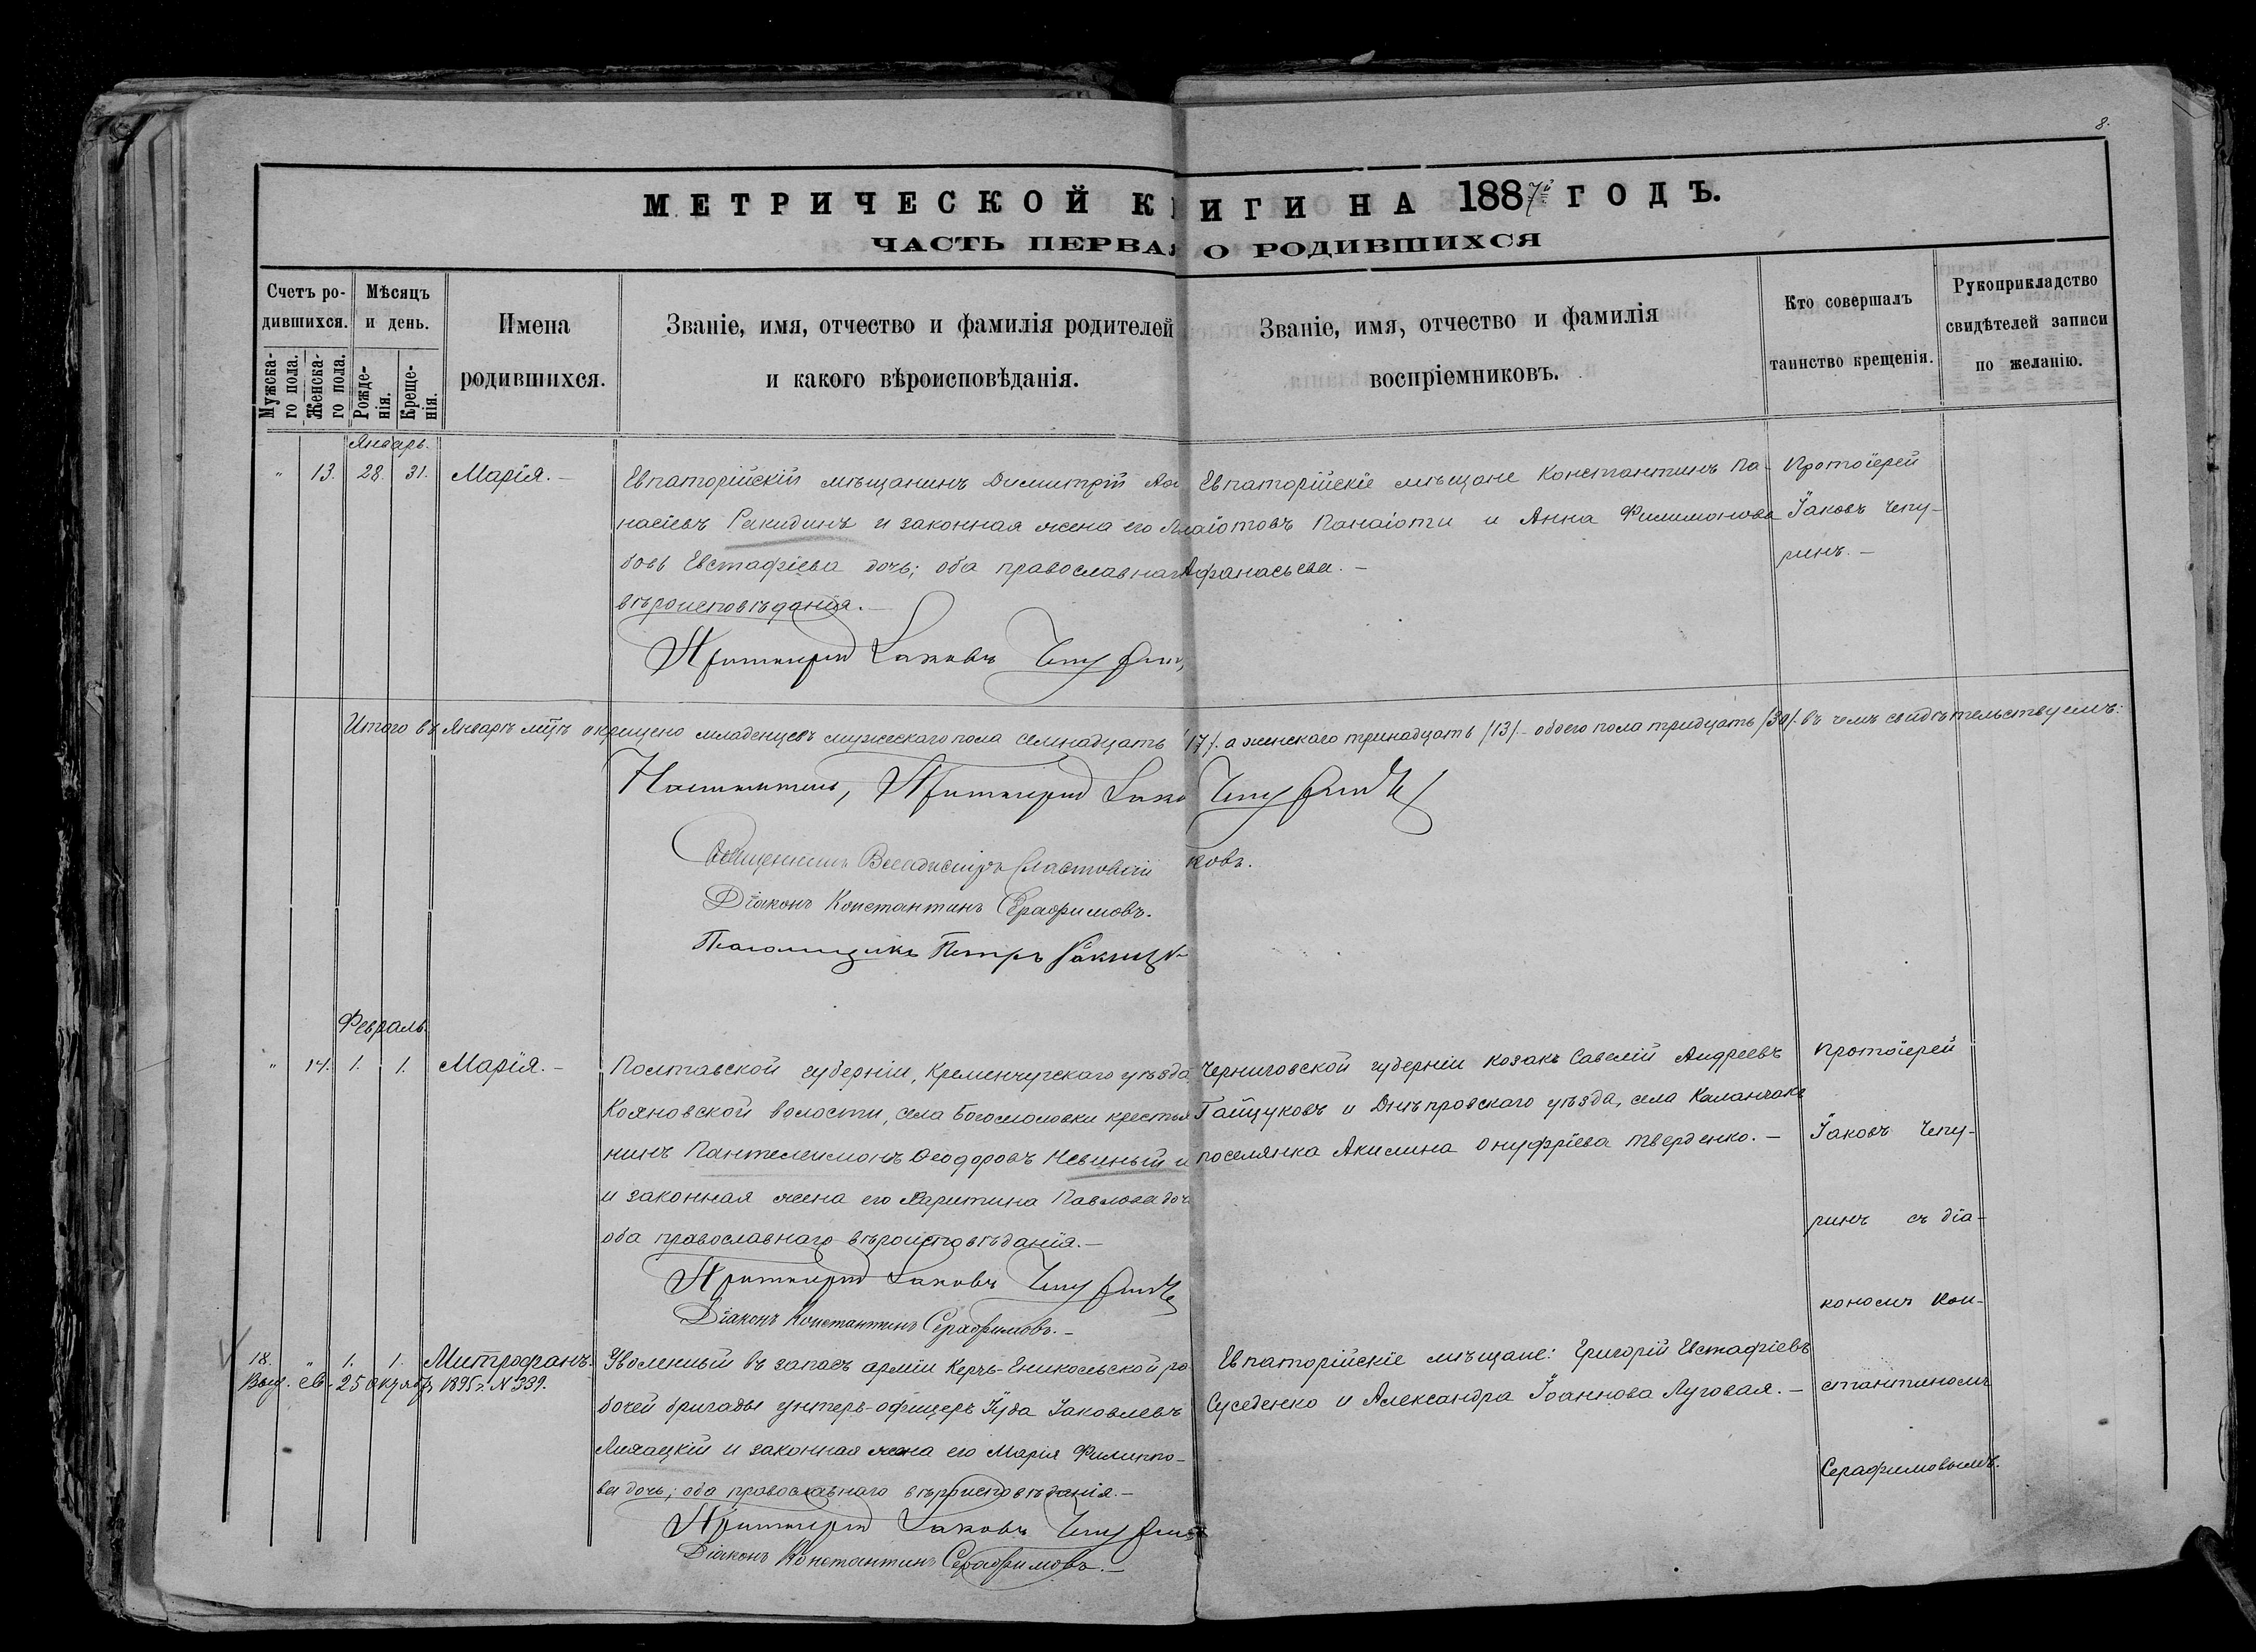 8.
МЕТРИЧЕСКОЙ К ИГИ НА 1887й ГОДЪ.
ЧАСТЬ ПЕРВАЯ О РОДИВШИХСЯ
Счетъ ро-
дившихся.
Мужска-
го пола.
Женска-
го пола.
Мѣсяцъ
и день.
Рожде-
нія.
Креще-
нія.
Имена
родившихся.
Званіе, имя, отчество и фамилія родителей
и какого вѣроисповѣданія.
Званіе, имя, отчество и фамилія
воспріемниковъ.
Кто совершалъ
таинство крещенія.
Рукоприкладство
свидѣтелей записи
по желанію.
Январь.
" 13. 28. 31. Марія.–
Евпаторійскій мѣщанинъ Димитрій
насіевъ и законная жена его
бовь Евстафіева дочь; оба православнаго
вѣроисповѣданія.–
Протоіерей Іаковъ
Евпаторійскіе мѣщане Константинъ Па-
наіотовъ Панаіоти и Анна Филимонова
Афанасьева.–
Протоіерей
Іаковъ Чепу-
ринъ.–
Итого въ Январѣ м҃цѣ окрещено младенцевъ мужескаго пола семнадцать /17/. а женскаго тринадцать /13/.– обоего пола тридцать /30/. въ чемъ свидѣтельствуемъ:
Настоятель, Протоіерей Чепуринъ
Священникъ Владиміръ ковъ.
Діаконъ Константинъ Серафимовъ.
Псаломщикъ Петръ
Февраль.
" 14. 1. 1. Марія.–
Полтавской губерніи, Кременчугскаго уѣзда
Кояновской волости, села Богомоловки крестья
нинъ Пантелеимонъ Ѳеодоровъ Невиный и
и законная жена его Харитина Павлова доч
оба православнаго вѣроисповѣданія.–
Протоіерей Іаковъ Чепуринъ
Діаконъ Константинъ Серафимовъ.–
Черниговской губерніи козакъ Савелій Андреевъ
Гайщуковъ и Днѣпровскаго уѣзда, села Каланчакъ
поселянка Акилина Онуфріева Тверденко.–
Протоіерей
Іаковъ Чепу-
ринъ съ діа-
кономъ Кон-
стантиномъ
Серафимовымъ.
18. " 1. 1. Митрофанъ.
Выд. св. 25 октября 1895 г. N 339.
Уволенный въ запасъ арміи Керчь-Еникольской ра
бочей бригады унтеръ-офицеръ Іуда Іаковлевъ
Лихацкій и законная жена его Марія Филиппо-
ва дочь; оба православнаго вѣроисповѣданія.–
Протоіерей Іаковъ
Діаконъ Константинъ Серафимовъ.–
Евпаторійскіе мѣщане: Григорій Евстафіевъ
Суседенко и Александра Іоаннова Луговая.–